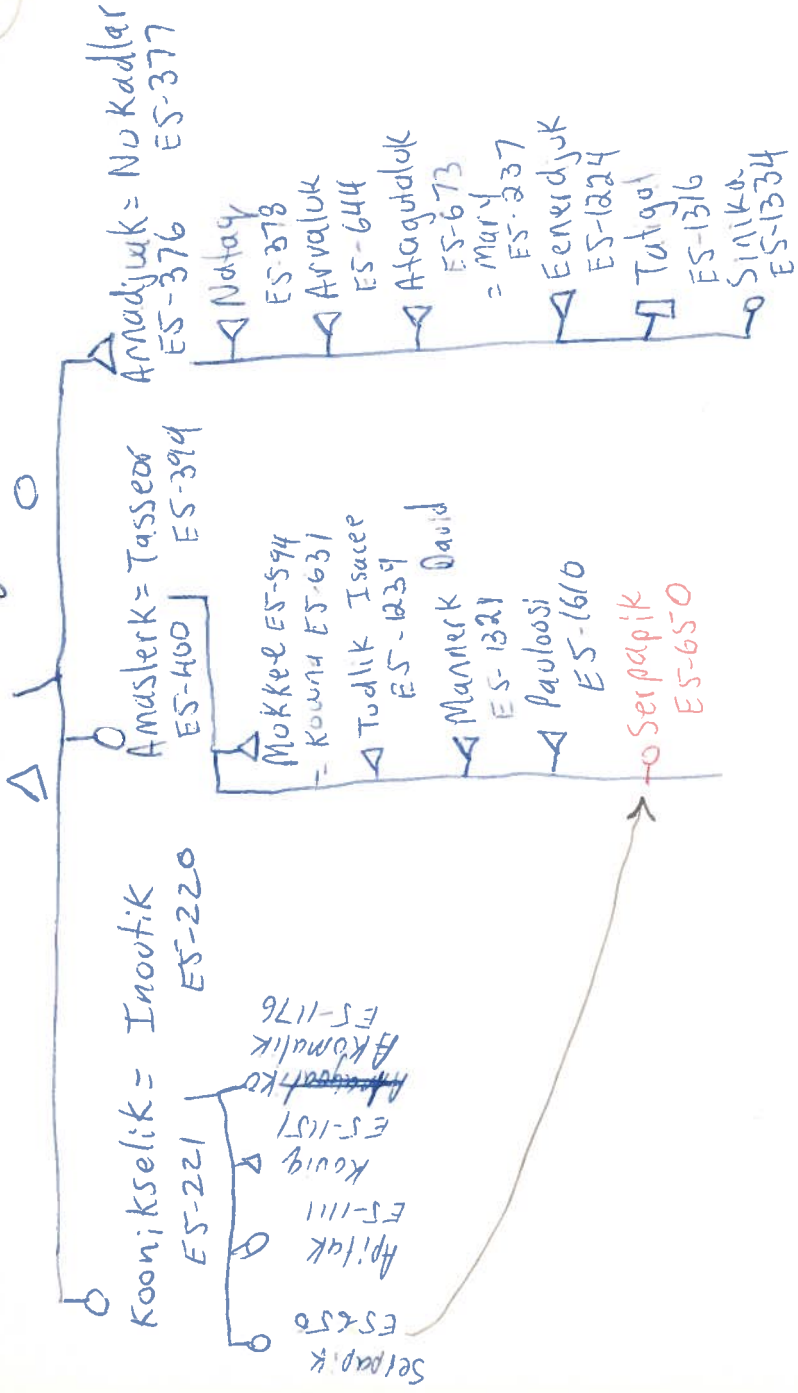 Koonikselik = Inootik
E5-221
E5-220
Serpapik
E5-650
Apitak
E5-1111
Koviq
E5-1151
Akomalik
E5-1176
Amaslerk = Tasseor
E5-400
E5-399
Mokkel E5-594
= Kowna E5-631
Tudlik Isacee
E5-1239
Mannerk David
E5-1321
Pauloosi
E5-1610
Serpapik
E5-650
Amadjuak = Nukadlar
E5-376
E5-377
Nataq
E5-378
Arvaluk
E5-644
Atagutaluk
E5-673
= Mary
E5-237
Eenerdjuk
E5-1224
E5-1316
Sinika
E5-1334